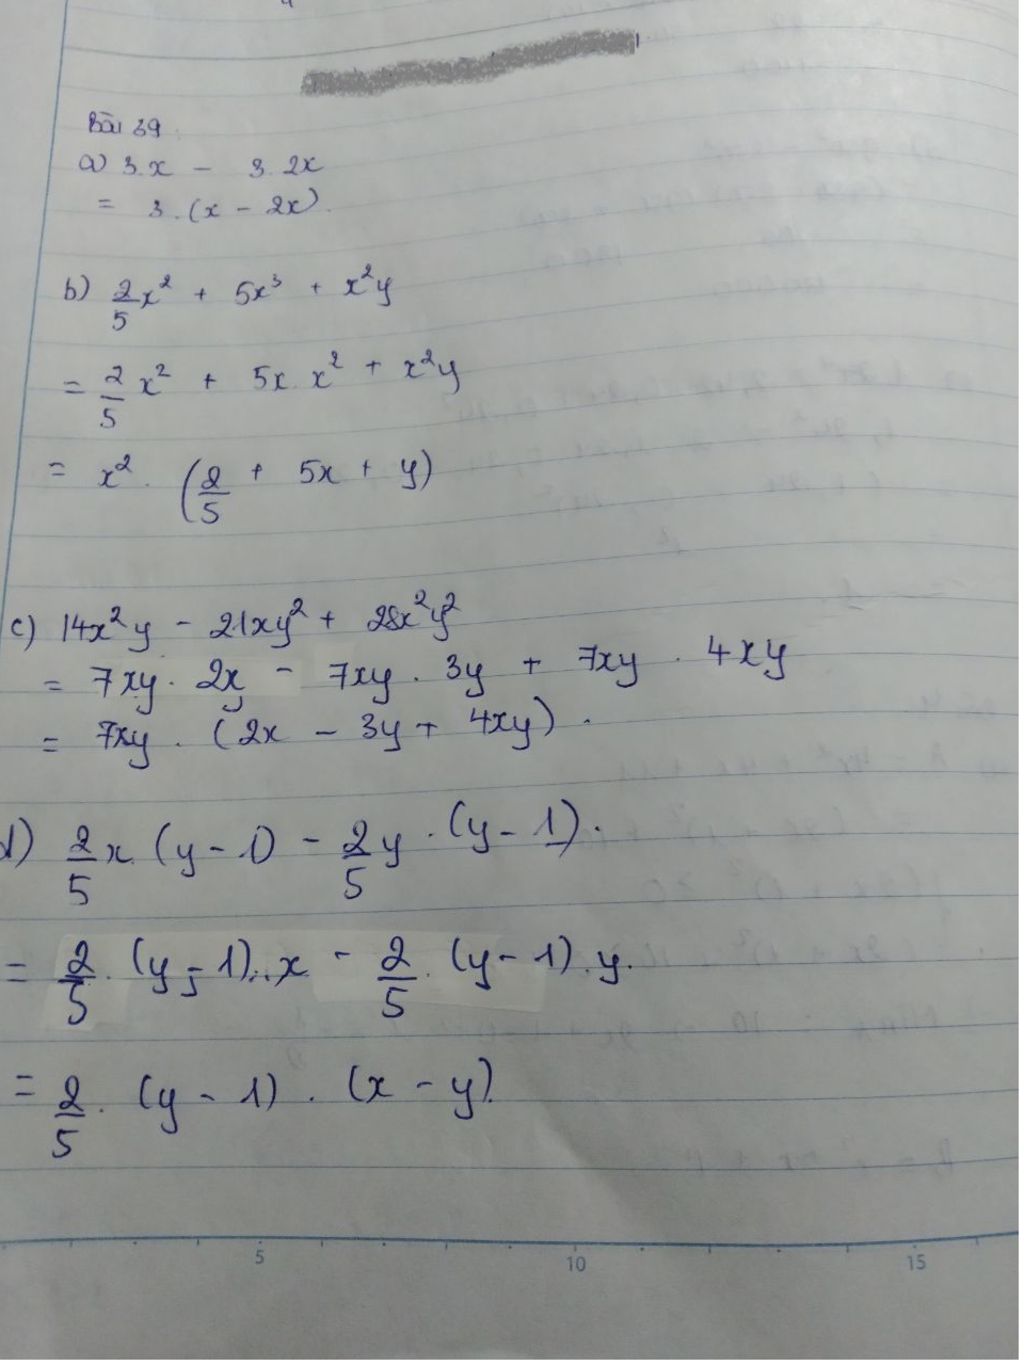 Bài 39
a) 3.x - 3.2x
= 3.(x - 2x).
b) 2/5 x² + 5x³ + x²y
= 2/5 x² + 5x.x² + x²y
= x². (2/5 + 5x + y)
c) 14x²y - 21xy² + 28x²y²
= 7xy. 2x - 7xy. 3y + 7xy. 4xy
= 7xy. (2x - 3y + 4xy).
d) 2/5 x.(y - 1) - 2/5 y.(y - 1).
= 2/5.(y - 1).x - 2/5.(y - 1).y.
= 2/5.(y - 1).(x - y).
5 10 15